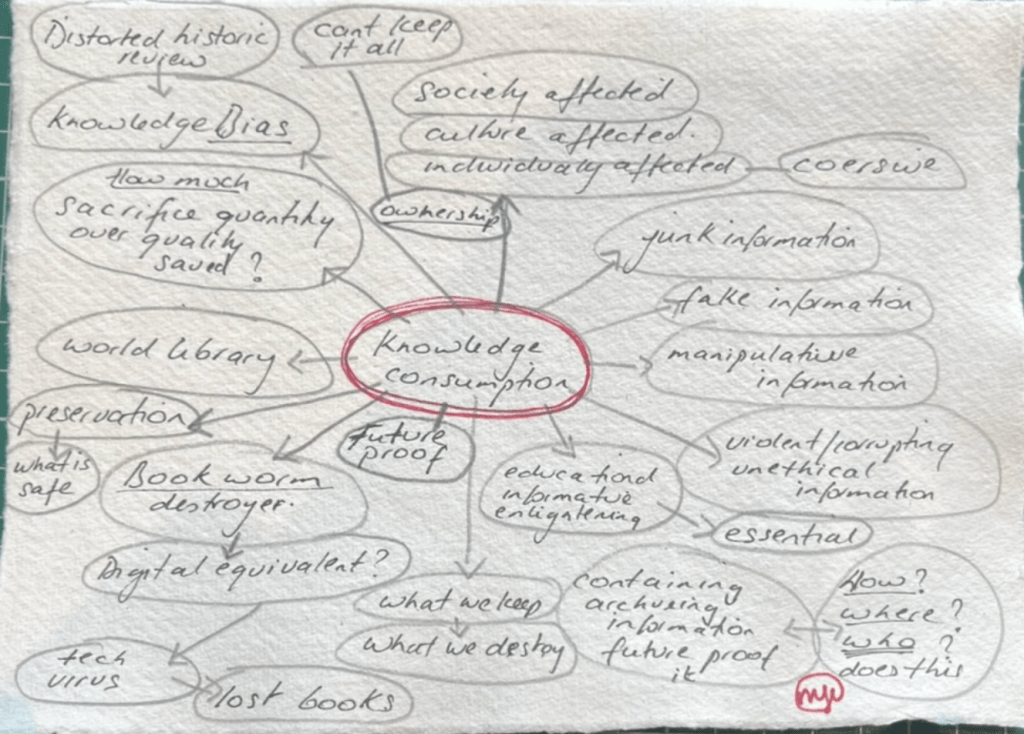 Distorted historic
review
cant keep
it all
society affected
culture affected.
individually affected
coersive
Knowledge Bias
How much
sacrifice quantity
over quality
saved?
ownership
junk information
fake information
manipulative
information
world library
Knowledge
consumption
preservation
what is
safe
Book worm
destroyer.
Future
proof
educational
informative
enligtening
violent/corrupting
unethical
information
essential
Digital equivalent?
what we keep
what we destoy
containing
archiving
information
future proof
it
How?
where?
who?
does this
tech
virus
lost books